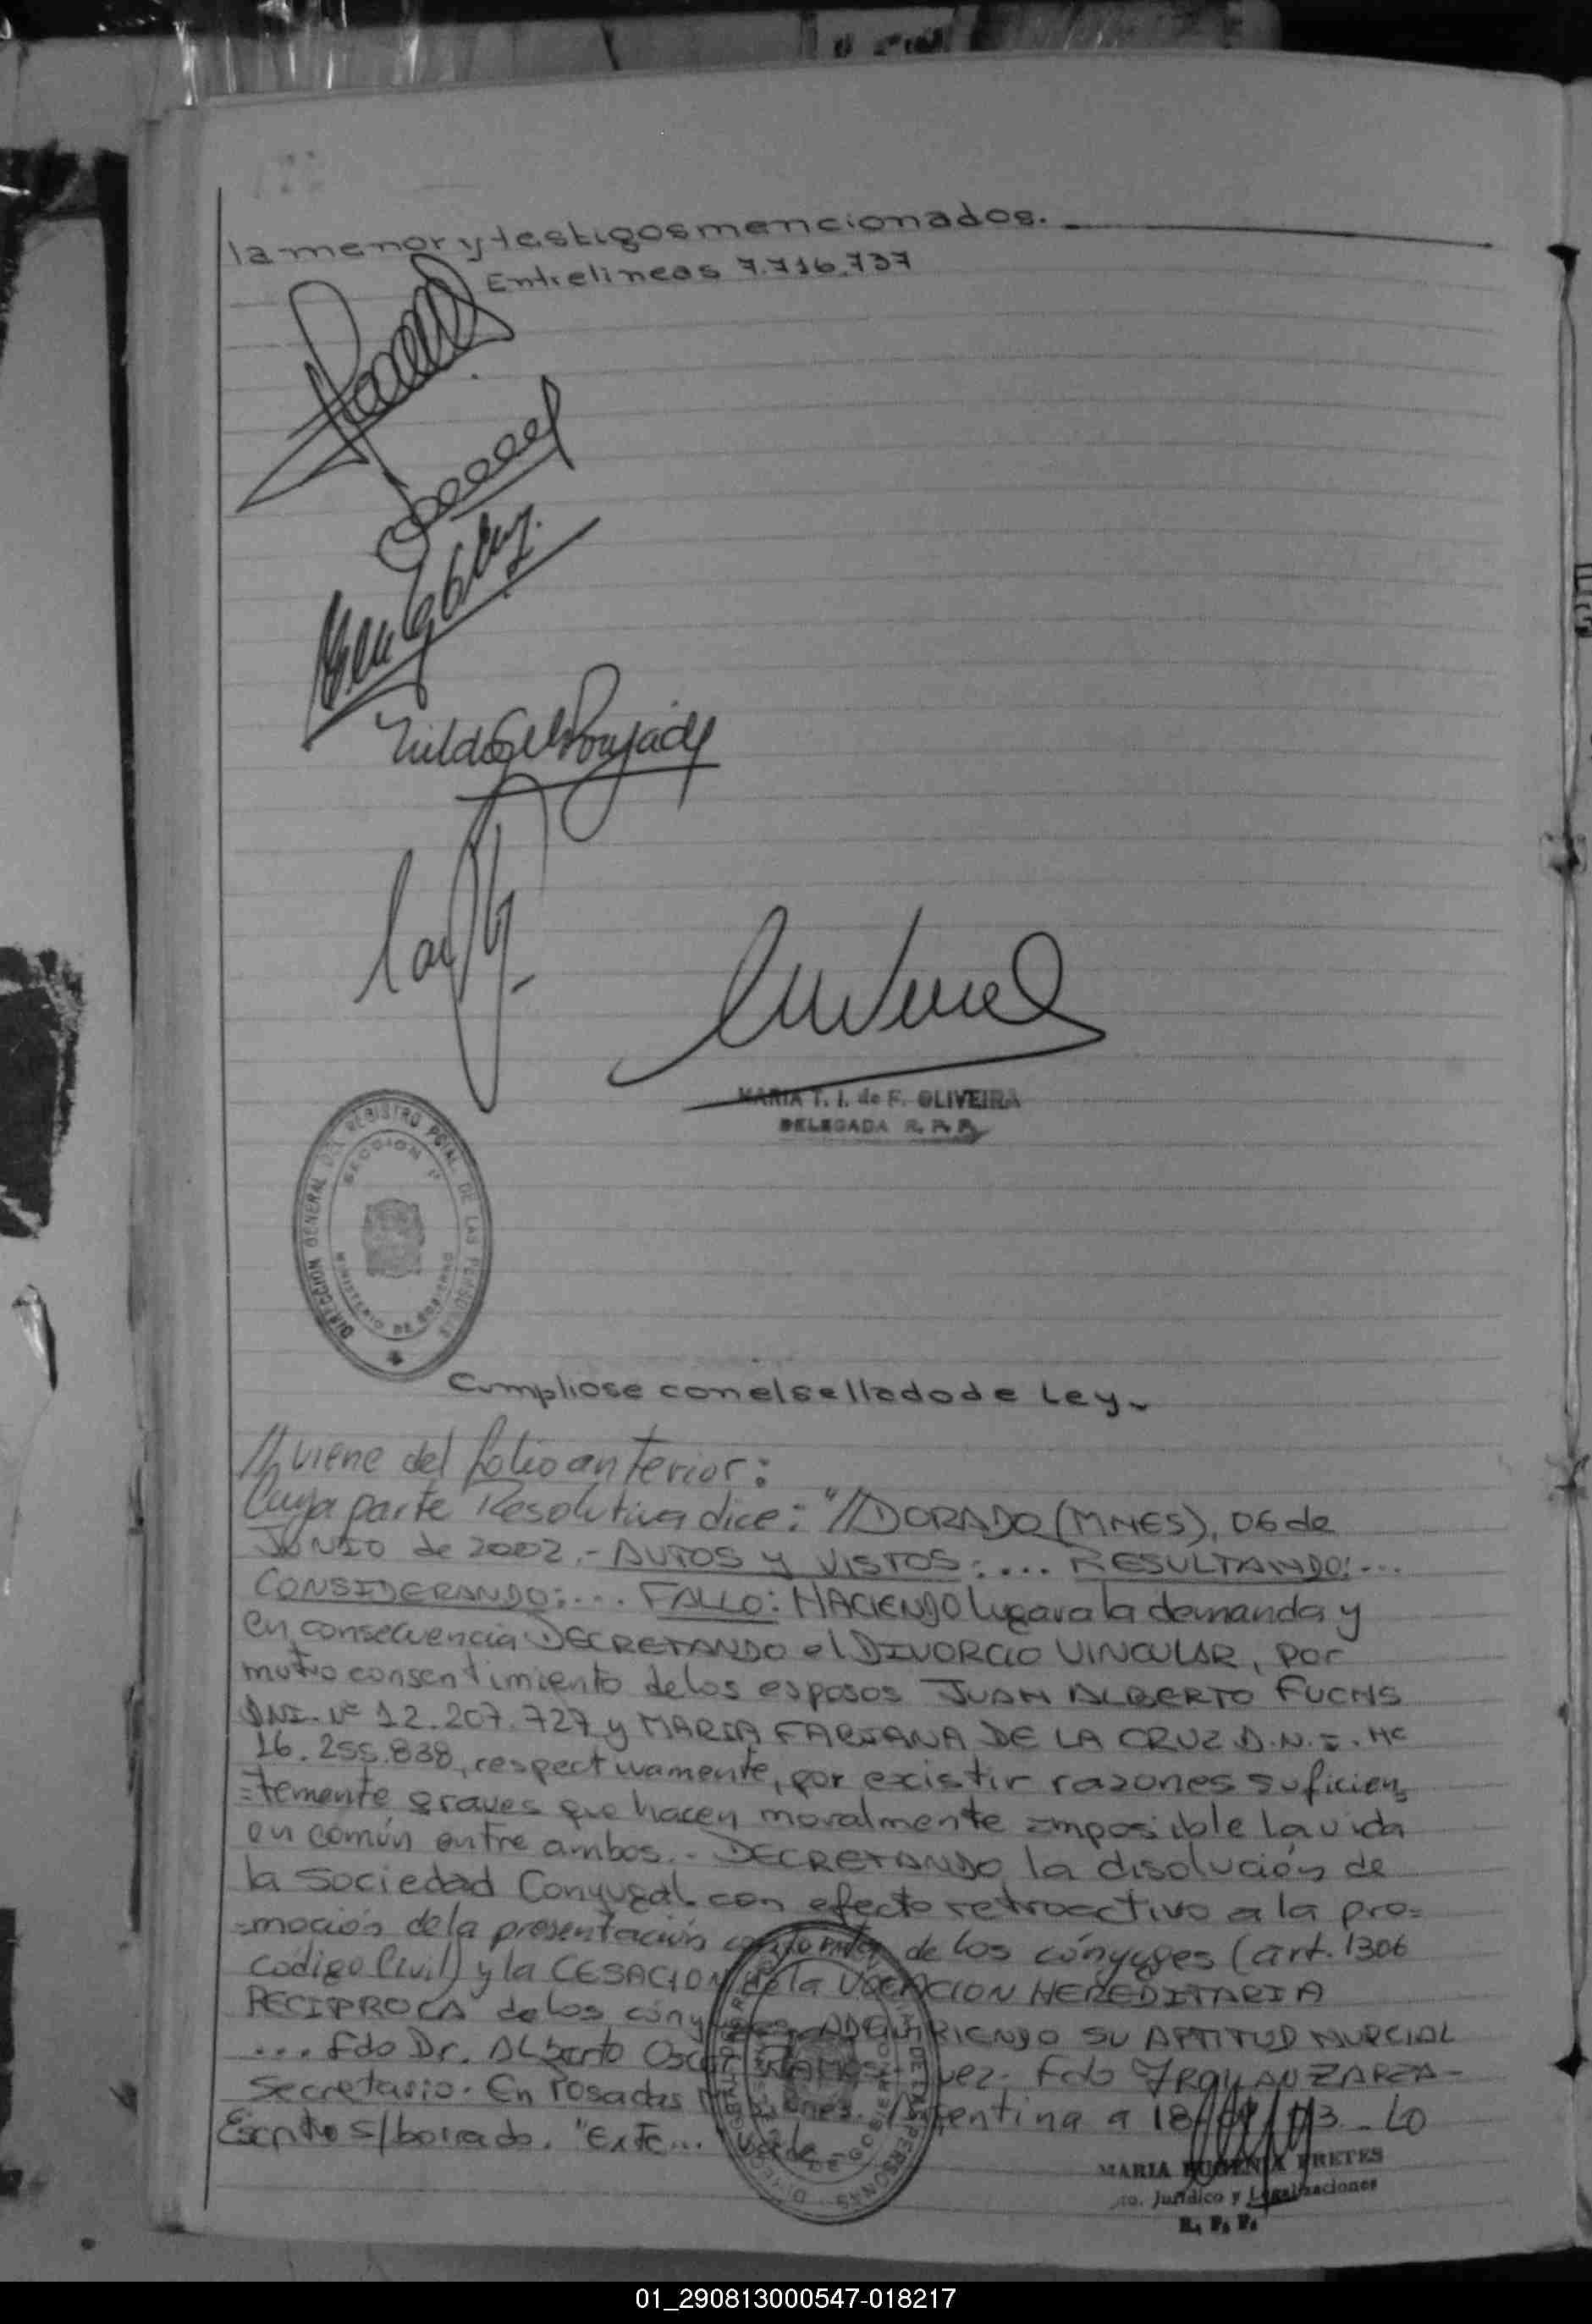 la menor y testigos mencionados.
Entrelineas 7.716.737
MARIA T. I. de F. OLIVEIRA
DELEGADA R. P. P.
DIRECCION GENERAL DEL REGISTRO PCIAL DE LAS PERSONAS
SECCION 1ª
MINISTERIO DE GOBIERNO
Cumpliose con el sellado de Ley.
// viene del folio anterior:
Cuya parte Resolutiva dice: "//DORADO (MNES), 06 de
JUNIO de 2002.- AUTOS Y VISTOS:... RESULTANDO:...
CONSIDERANDO:... FALLO: HACIENDO lugar a la demanda y
en consecuencia DECRETANDO el DIVORCIO VINCULAR, por
mutuo consentimiento de los esposos JUAN ALBERTO FUCHS
DNI. Nº 12.207.727 y MARIA FABIANA DE LA CRUZ D.N.I. Nº
16.255.838, respectivamente, por existir razones suficien=
=temente graves que hacen moralmente imposible la vida
en común entre ambos.- DECRETANDO la disolución de
la Sociedad Conyugal con efecto retroactivo a la pro=
=moción de la presentación conjunta de los cónyuges (art. 1306
código Civil) y la CESACION de la VOCACION HEREDITARIA
RECIPROCA de los cónyuges, ADQUIRIENDO SU APTITUD NUPCIAL
... Fdo Dr. Alberto Oscar RAMOS - Juez. Fdo
Secretario. En Posadas Misiones. Argentina a 18/ /03. Lo
Escrito s/borrado. "Exte... Vale
MARIA EUGENIA FRETES
Jurídico y Legalizaciones
R. P. P.
01_290813000547-018217